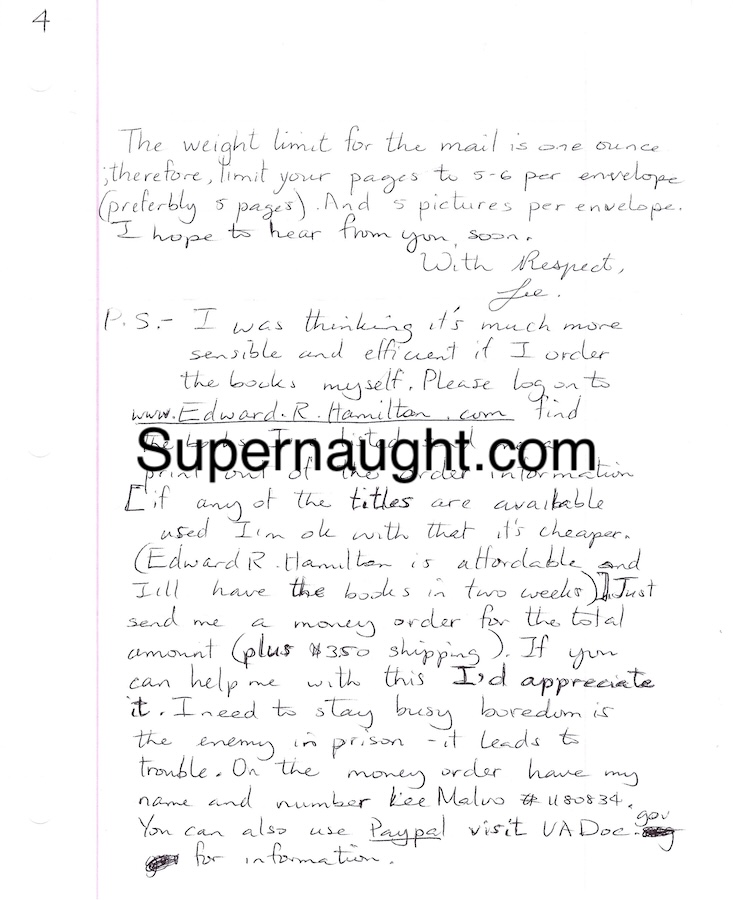 4
The weight limit for the mail is one ounce
;therefore, limit your pages to 5-6 per envelope
(preferbly 5 pages). And 5 pictures per envelope.
I hope to hear from you, soon.
With Respect,
Lee.
P.S.- I was thinking it's much more
sensible and efficient if I order
the books myself. Please log on to
www.Edward.R.Hamilton.com find
the books I've listed send me a
Supernaught.com
print out of the order information
[if any of the titles are available
used I'm ok with that it's cheaper.
(Edward R. Hamilton is affordable and
I'll have the books in two weeks)]. Just
send me a money order for the total
amount (plus $3.50 shipping). If you
can help me with this I'd appreciate
it. I need to stay busy boredom is
the enemy in prison - it leads to
trouble. On the money order have my
name and number Lee Malvo # 1180834.
You can also use Paypal visit VADoc.gov
for information.